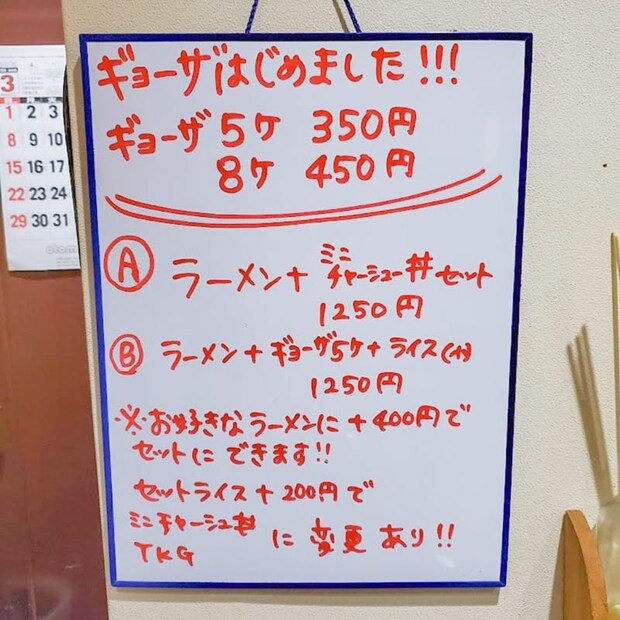 ギョーザはじめました!!!
ギョーザ 5ケ 350円
8ケ 450円
Ⓐ ラーメン+ミニチャーシュー丼セット
1250円
Ⓑ ラーメン+ギョーザ5ケ+ライス(小)
1250円
※お好きなラーメンに+400円で
セットにできます!!
セットライス+200円で
ミニチャーシュー丼
TKG に変更あり!!
3
1 2 3
8 9 10
15 16 17
22 23 24
29 30 31